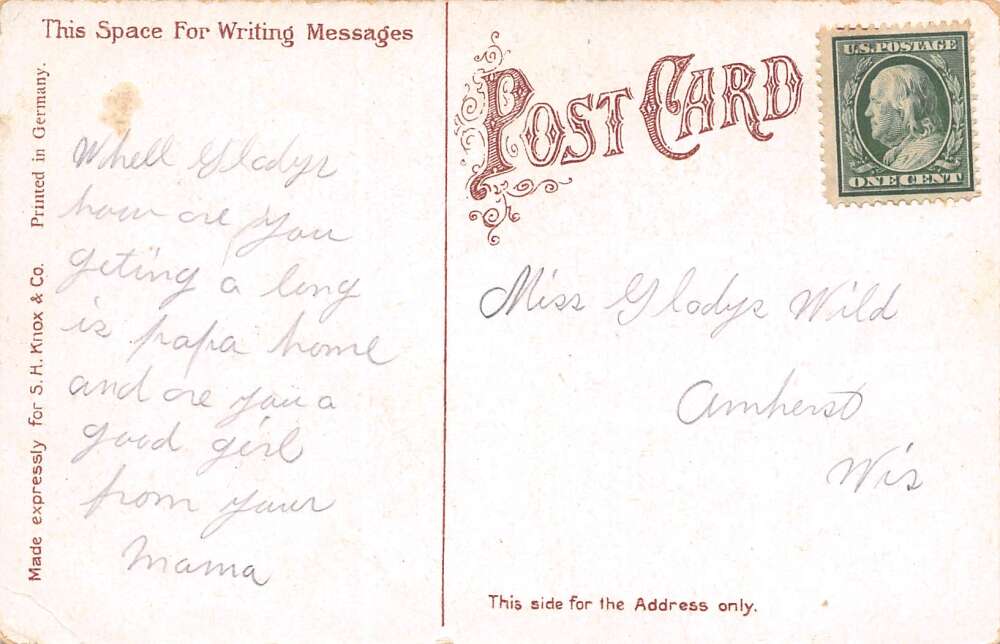 This Space For Writing Messages
Printed in Germany.
Made expressly for S. H. Knox & Co.
Whell Gladys
how are you
geting a long
is papa home
and are you a
good girl
from your
Mama
POST CARD
U.S. POSTAGE
ONE CENT
Miss Gladys Wild
Amherst
Wis
This side for the Address only.